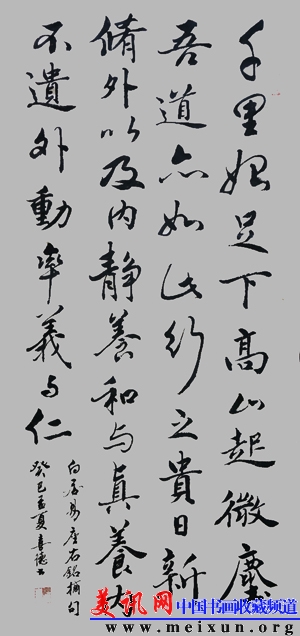 千里始足下高山起微塵
吾道亦如此行之貴日新
脩外以及内静養和与真養内
不遺外動率義与仁
白居易座右銘摘句
癸巳孟夏德书
美讯网
中国书画收藏频道
www.meixun.org